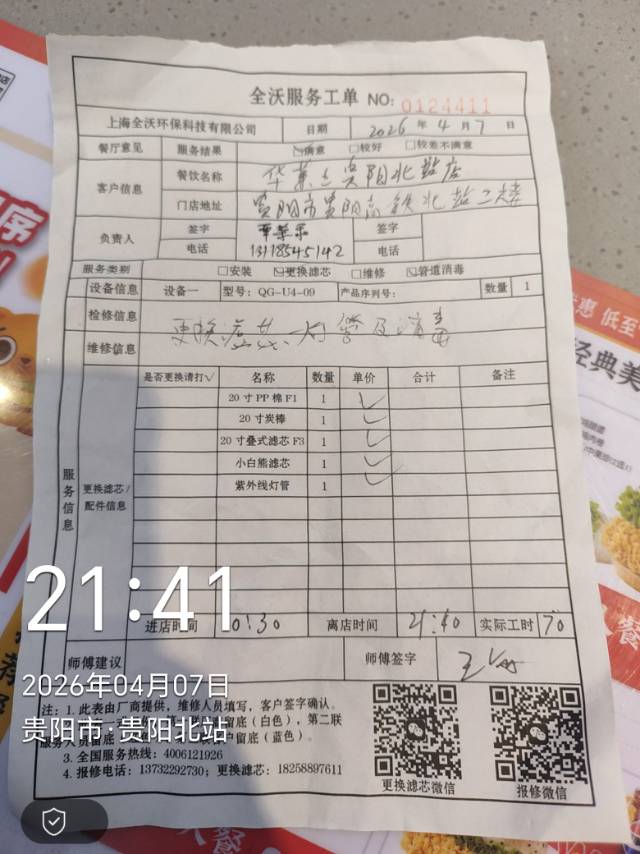 全沃服务工单 NO: 0124411
上海全沃环保科技有限公司 日期 2026 年 4 月 7 日
餐厅意见 服务结果 ☑满意 □较好 □较差不满意
客户信息 餐饮名称 华莱士贵阳北站店
门店地址 贵阳市贵阳高铁北站二楼
负责人 签字 签字
电话 13118545142 电话
服务类别 □安装 ☑更换滤芯 □维修 ☑管道消毒
设备信息 设备一 型号: QG-U4-09 产品序列号: 数量 1
检修信息
维修信息
更换滤芯、灯管及消毒
是否更换请打√ 名称 数量 单价 合计 备注
20 寸 PP 棉 F1 1 ✓
20 寸炭棒 1 ✓
20 寸叠式滤芯 F3 1 ✓
小白熊滤芯 1 ✓
紫外线灯管 1 ✓
服务信息
更换滤芯/
配件信息
进店时间 0:30 离店时间 21:40 实际工时 70
师傅建议 师傅签字
注: 1. 此表由厂商提供，维修人员填写，客户签字确认。
留底（白色），第二联
服务人员留底 户留底（蓝色）。
3. 全国服务热线: 4006121926
4. 报修电话: 13732292730; 更换滤芯: 18258897611
更换滤芯微信
报修微信
21:41
2026年04月07日
贵阳市·贵阳北站
惠 低至
经典美